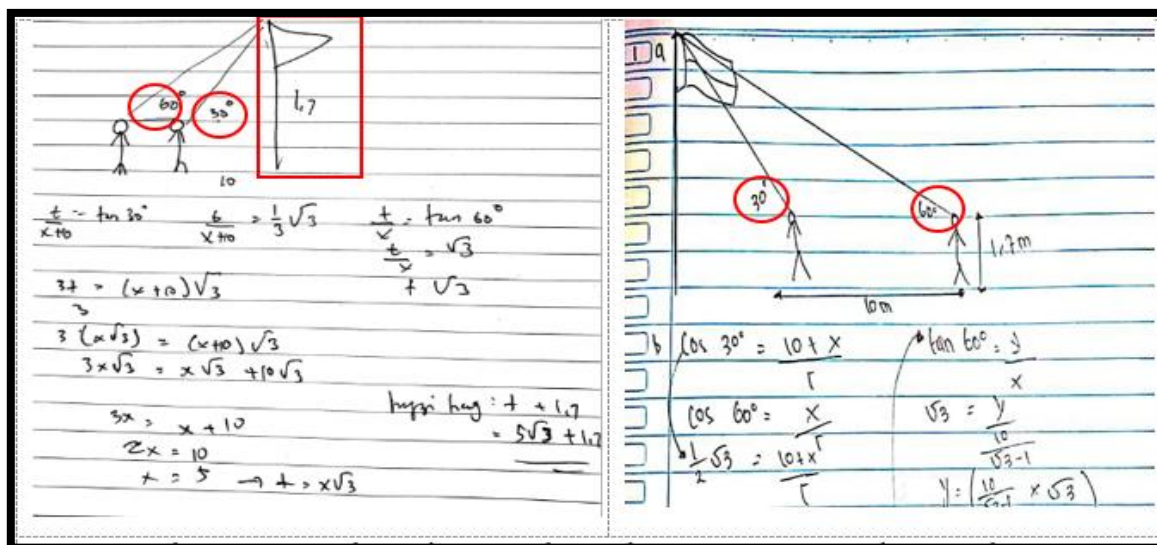 60°
30°
1,7
10
t/x+10 = tan 30°
t/x+10 = 1/3 √3
t/x = tan 60°
t/x = √3
t √3
3t = (x+10)√3
3
3 (x√3) = (x+10) √3
3x√3 = x√3 + 10√3
3x = x + 10
2x = 10
x = 5 → t = x√3
: t + 1,7
= 5√3 + 1,7
1 a
30°
60°
1,7 m
10 m
b cos 30° = 10 + x/r
cos 60° = x/r
1/2 √3 = 10+x/r
tan 60° = y/x
√3 = y/10/√3-1
y = (10/√3-1 x √3)